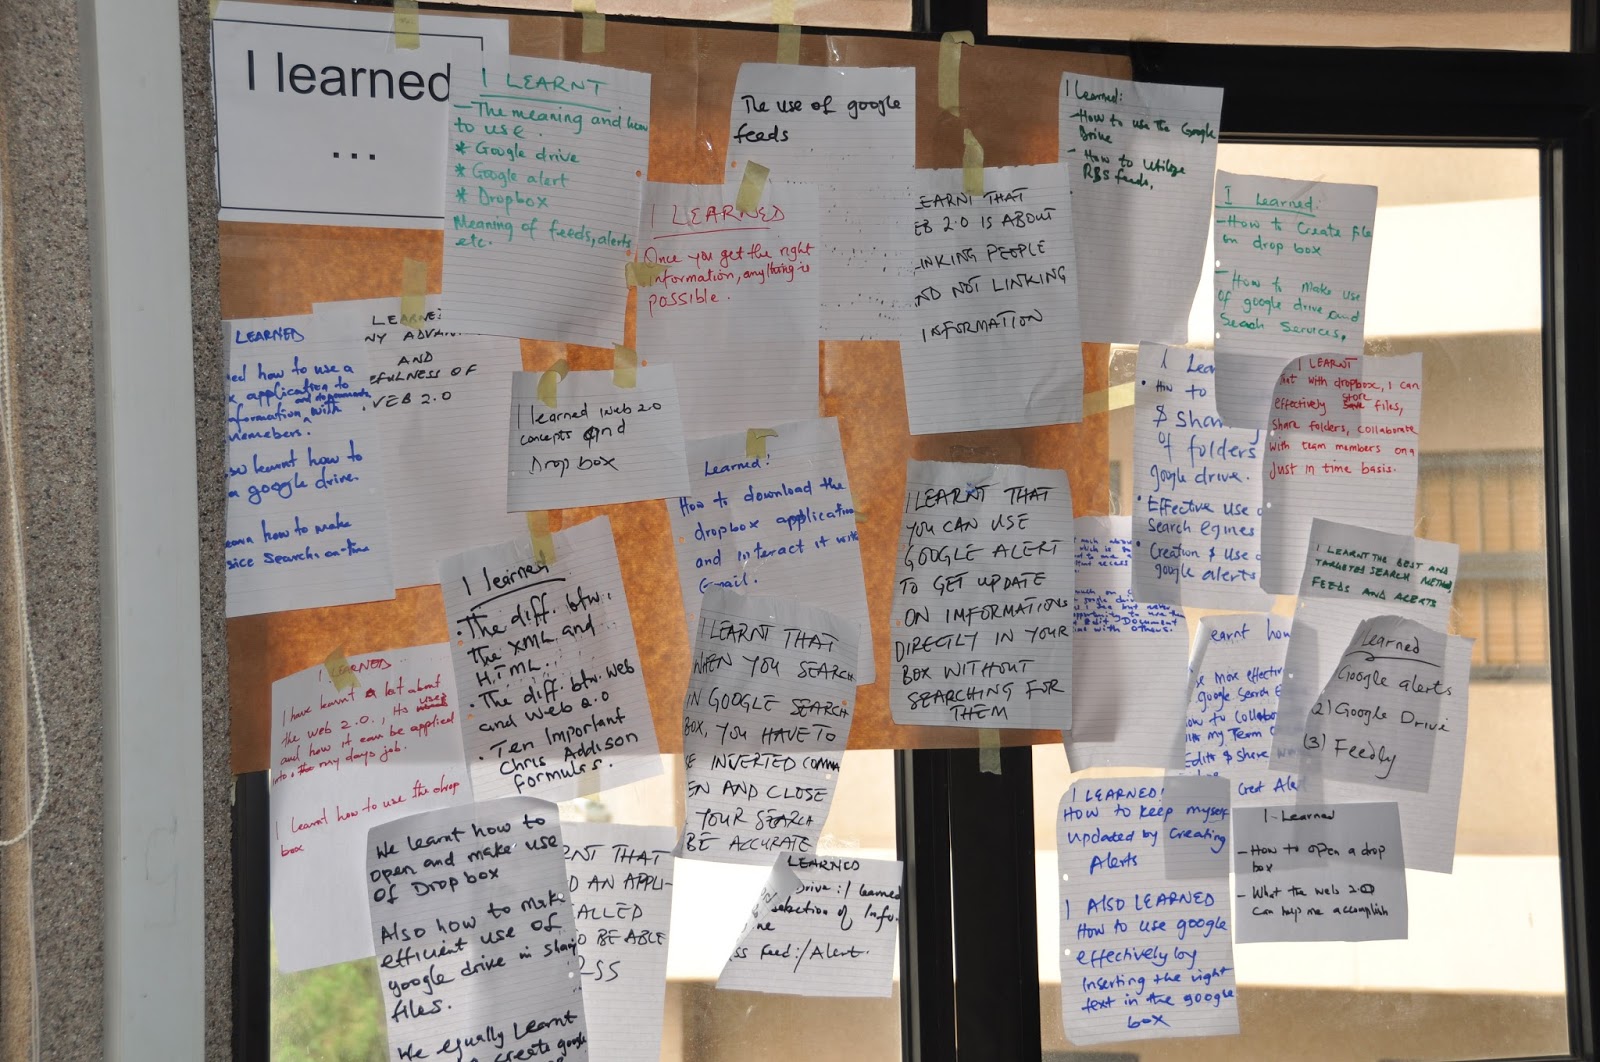 I learned
...
I LEARNT
- The meaning and how
to use.
* Google drive
* Google alert
* Dropbox
Meaning of feeds, alerts
etc.
The use of google
feeds
I learned:
- How to use the Google
Drive
- How to Utilize
RBS feeds,
I LEARNED
Once you get the right
information, anything is
possible.
EARNT THAT
EB 2.0 IS ABOUT
INKING PEOPLE
ND NOT LINKING
INFORMATION
I Learned:
- How to Create file
on drop box
- How to make use
of google drive and
Seach Services,
LEARNED
how to use a
application to
and documents
nformation with
members.
so learnt how to
a google drive.
how to make
search on-time
LEARNE
NY ADVAN
AND
EFULNESS OF
WEB 2.0
I learned Web 2.0
concepts and
Drop box
Learned!
How to download the
dropbox application
and interact it with
Gmail.
I LEARNT THAT
YOU CAN USE
GOOGLE ALERT
TO GET UPDATE
ON INFORMATIONS
DIRECTLY IN YOUR
BOX WITHOUT
SEARCHING FOR
THEM
I Lear
• How to
$ Shar
of folders
google drive.
• Effective use o
Search egines
• Creation $ use o
google alerts
I LEARNT
that with dropbox, I can
effectively store files,
share folders, collaborate
with team members on a
Just in time basis.
I LEARNT THE BEST AND
TARGETED SEARCH METHOD,
FEEDS AND ALERTS
I learned
• The diff. btw.
the XML and
HTML.
• The diff. btw. Web
and Web 2.0
• Ten Important
Chris Addison
formulas.
I LEARNED
I have learnt a lot about
the web 2.0., its uses
and how it can be applied
into my days job.
I learnt how to use the drop
box
I LEARNT THAT
WHEN YOU SEARCH
IN GOOGLE SEARCH
BOX, YOU HAVE TO
INVERTED COMMA
EN AND CLOSE
YOUR SEARCH
BE ACCURATE
google driv
opportunity to use
Edit Document
with others.
earnt how
Most effectiv
google Search E
how to Collabor
my Team
Edits & Share
Creat Aler
Learned
Google alerts
(2) Google Drive
(3) Feedly
We learnt how to
open and make use
of Dropbox
Also how to make
efficient use of
google drive in shari
files.
We equally learnt
create google
RNT THAT
AN APPLI-
ALLED
BE ABLE
RSS
LEARNED
Drive :/ learned
selection of Info-
ne
ss Feed:/Alert.
I LEARNED!
How to keep myself
updated by creating
Alerts
I ALSO LEARNED
How to use google
effectively by
inserting the right
text in the google
box
I - Learned
- How to open a drop
box
- What the web 2.0
can help me accomplish